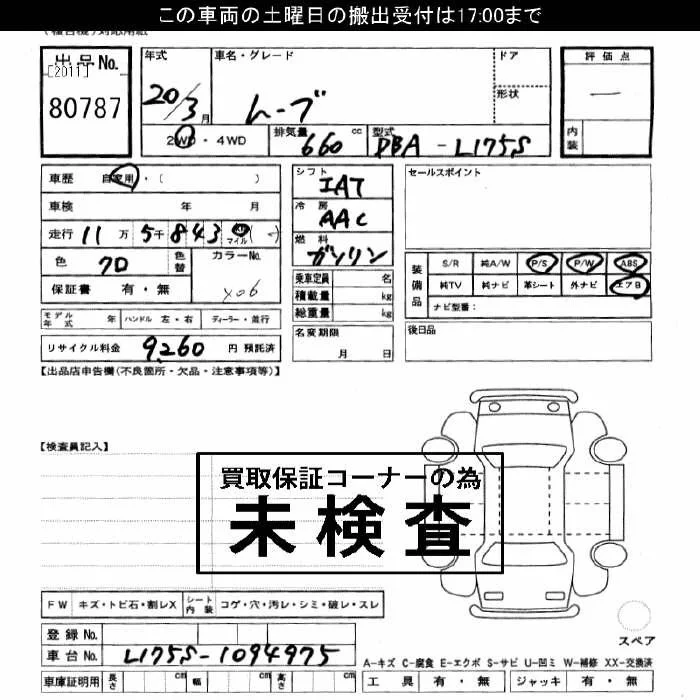 この車両の土曜日の搬出受付は17:00まで
出品No.
[2011]
80787
年式
20/3月
車名・グレード
ムーブ
ドア
形状
評価点
—
内装
2WD・4WD
排気量
660 cc
型式
DBA-L175S
車歴 自家用・( )
車検 年 月
走行 11万5千843 マイル
色 クロ 色替
カラーNo.
X06
保証書 有・無
シフト
IAT
冷房
AAC
燃料
ガソリン
乗車定員 名
積載量 kg
総重量 kg
セールスポイント
装備品
S/R 純A/W P/S P/W ABS
純TV 純ナビ 革シート 外ナビ エアB
ナビ型番:
モデル年式 年 ハンドル 左・右 ディーラー・並行
リサイクル料金 9,260 円 預託済
名変期限
月 日
後日品
【出品店申告欄(不良箇所・欠品・注意事項等)】
【検査員記入】
買取保証コーナーの為
未検査
FW キズ・トビ石・割レX シート内装 コゲ・穴・汚レ・シミ・破レ・スレ
スペア
登録No.
車台No. L175S-1094975
A-キズ C-腐食 E-エクボ S-サビ U-凹ミ W-補修 XX-交換済
車庫証明用 長さ cm 幅 cm 高さ cm
工具 有・無 ジャッキ 有・無